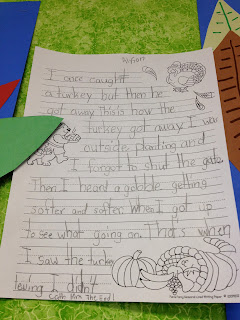 I once caught
a turkey but then he
got away. This is how the
turkey got away. I was
outside planting and
I forgot to shut the gate.
Then I heard a gobble getting
softer and softer. When I got up
to see what going on. Thats when
I saw the turkey
leving I didn't
Cath Him The End!